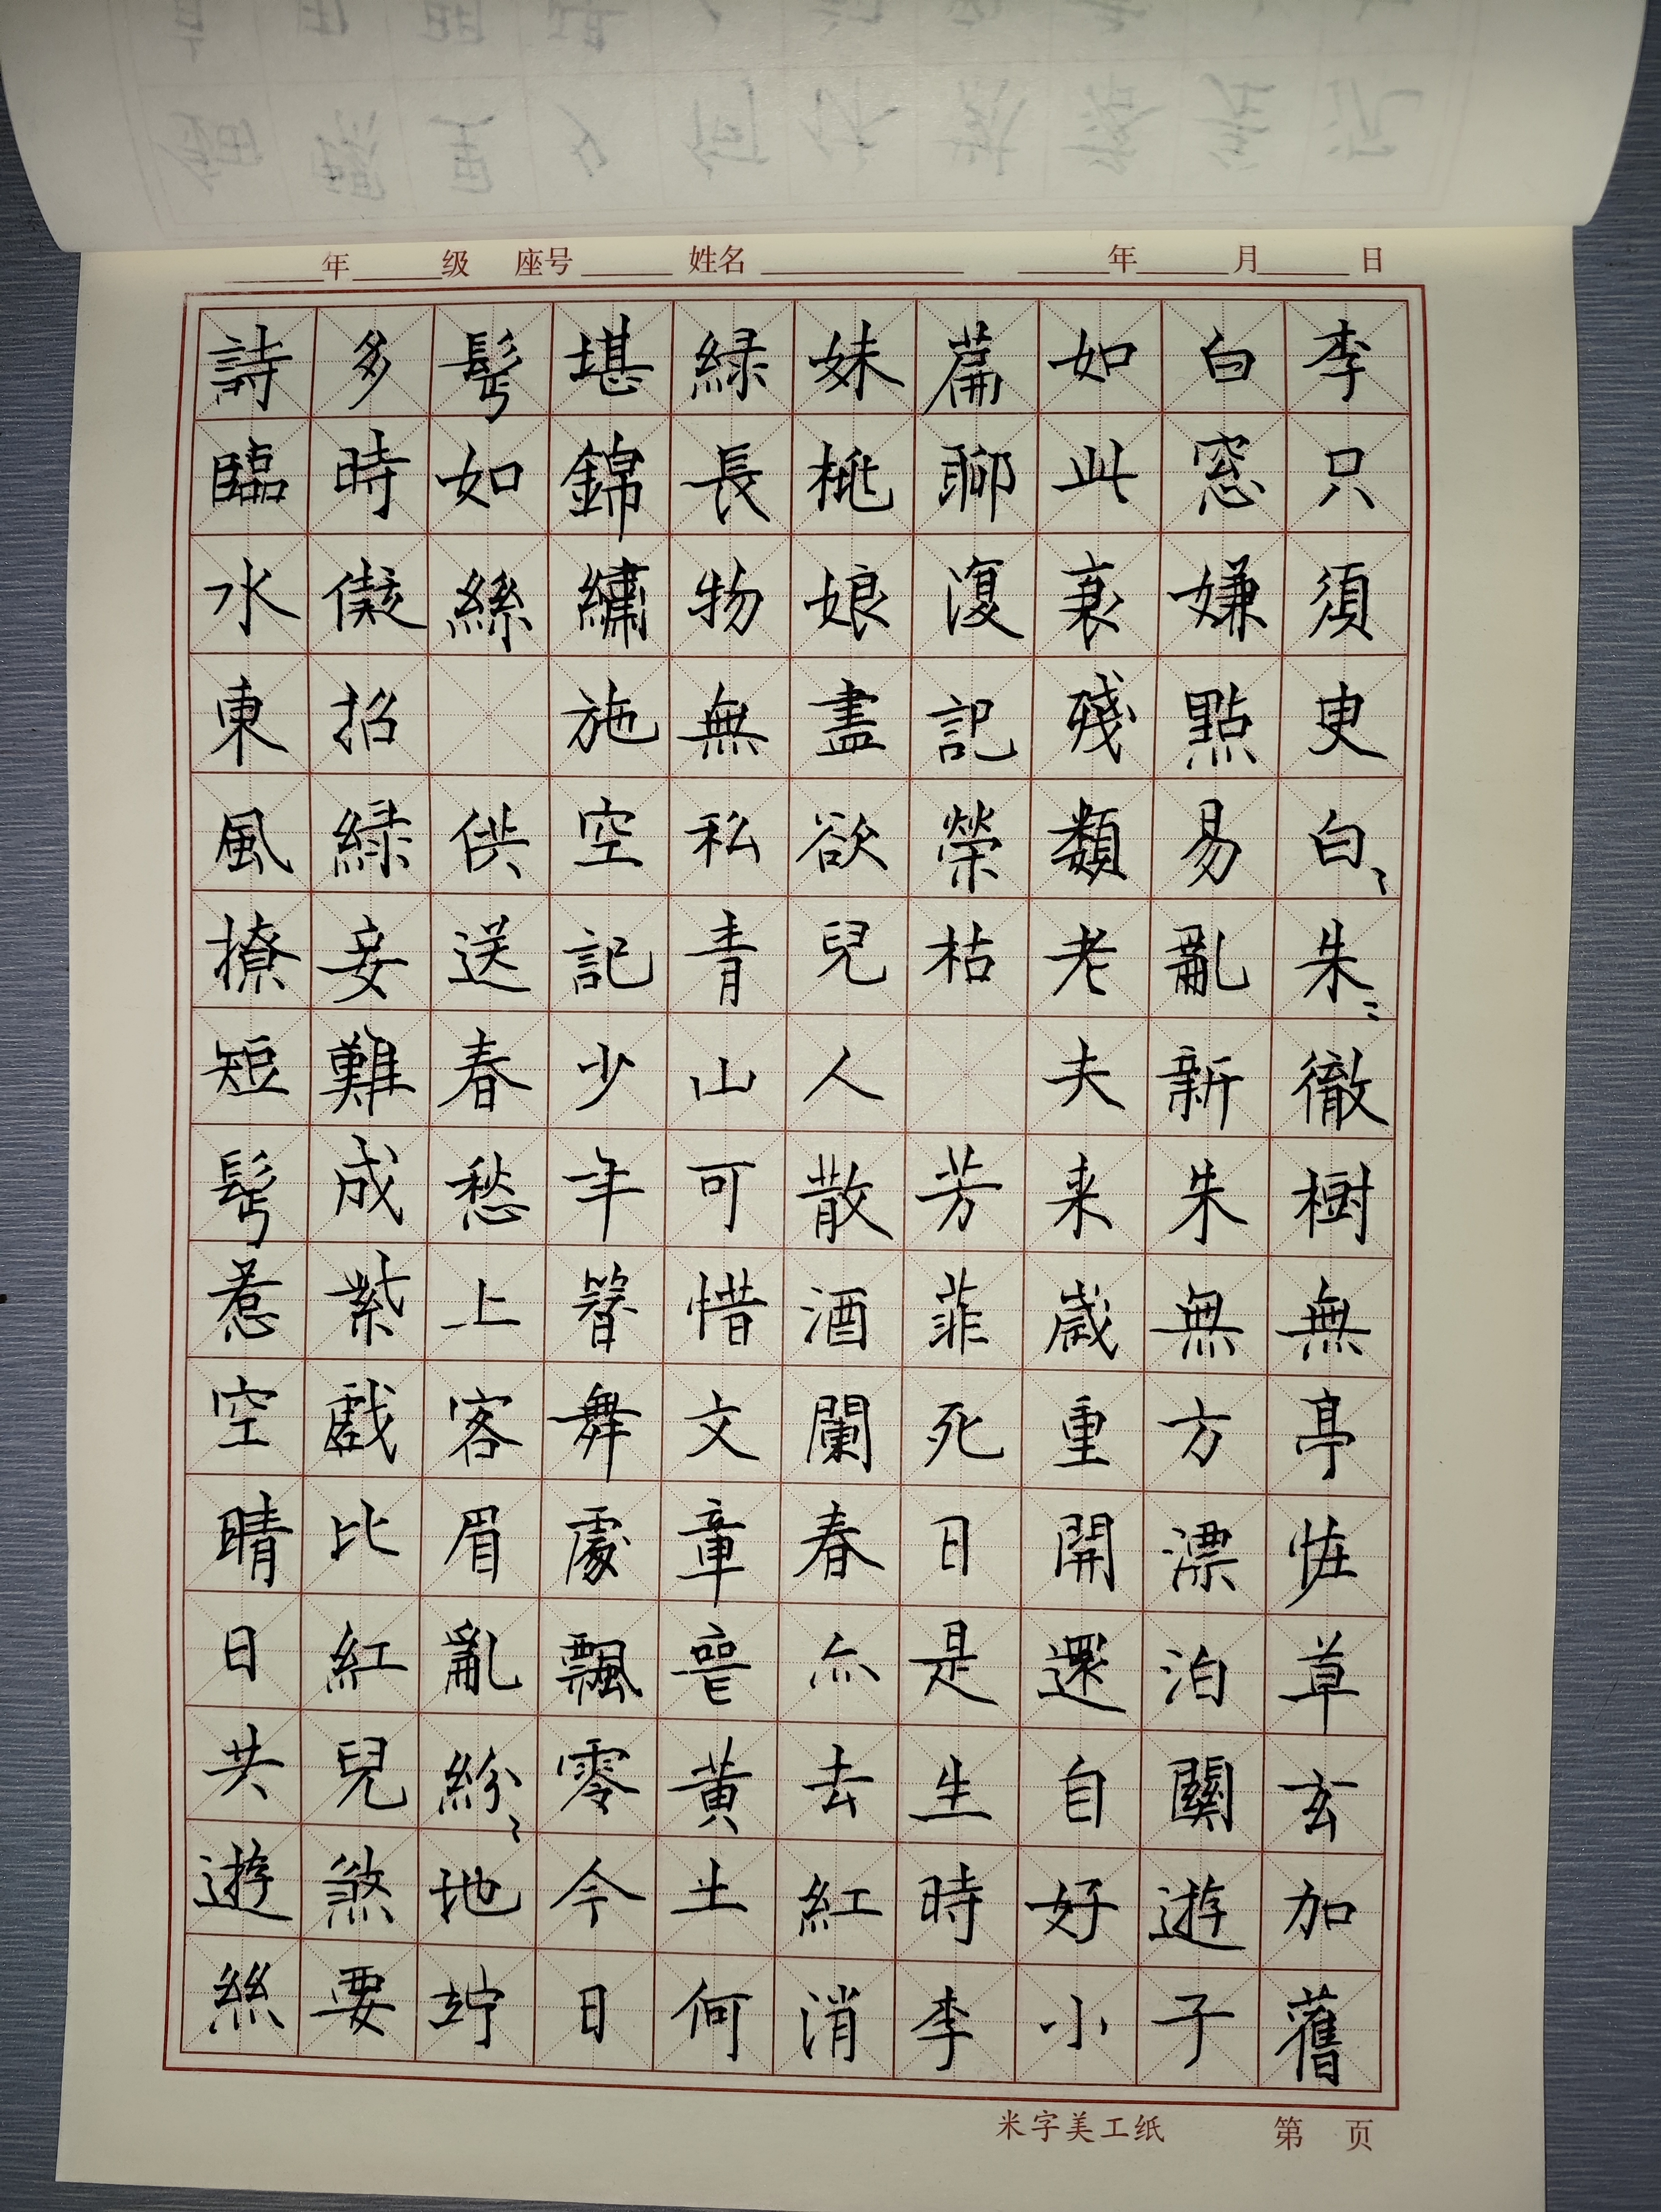 年 级 座号 姓名 年 月 日
李只須臾白〻朱〻徹樹無亭恠草玄加舊
白窓嫌點易亂新朱無方漂泊關遊子
如此衰殘類老夫来歲重開還自好小
篇聊復記榮枯 芳菲死日是生時李
妹桃娘盡欲兒人散酒闌春亦去紅消
緑長物無私青山可惜文章喪黄土何
堪錦繡施空記少年簪舞處飄零今日
髩如絲 供送春愁上客眉亂紛〻地竚
多時儗招緑妾難成紫戲比紅兒煞要
詩臨水東風撩短髩惹空晴日共遊絲
米字美工纸 第 页